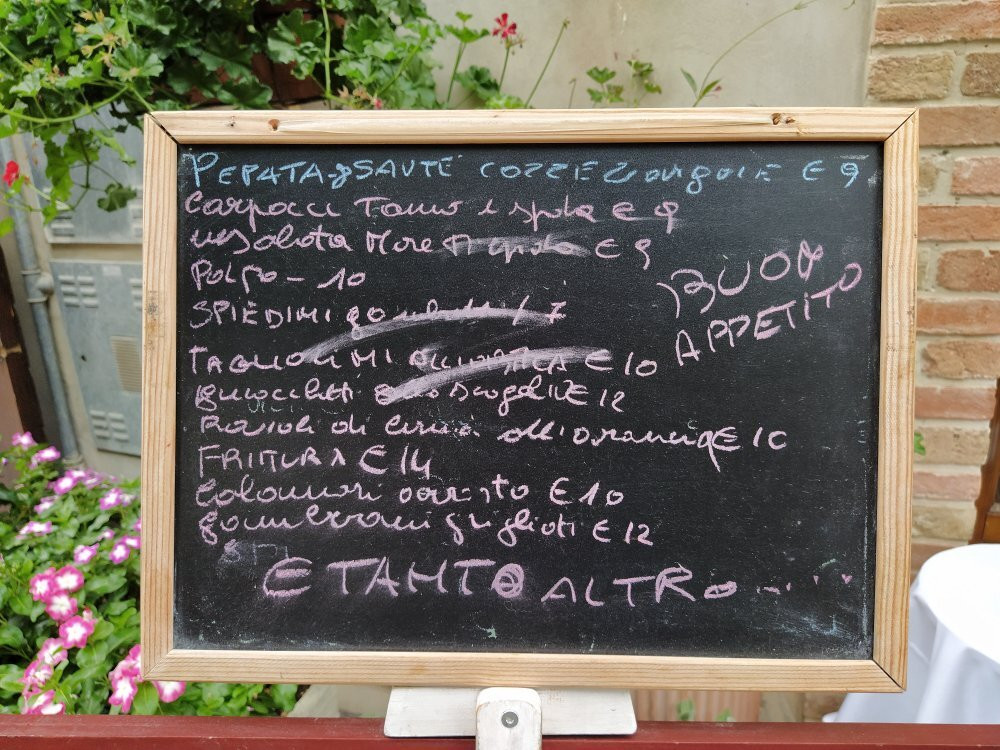 PEPATA-SAUTE COZZE E vongole € 9
Carpacci Tonno e spada € 9
insalata Mare € 9
Polpo - 10
SPIEDINI gamberetti / 7
TAGLIOLINI € 10
gnocchetti scoglio € 12
Ravioli di cernia all'arancia € 10
FRITTURA € 14
Calamari arrosto € 10
gamberoni grigliati € 12
E TANTO ALTRO ......
BUON
APPETITO